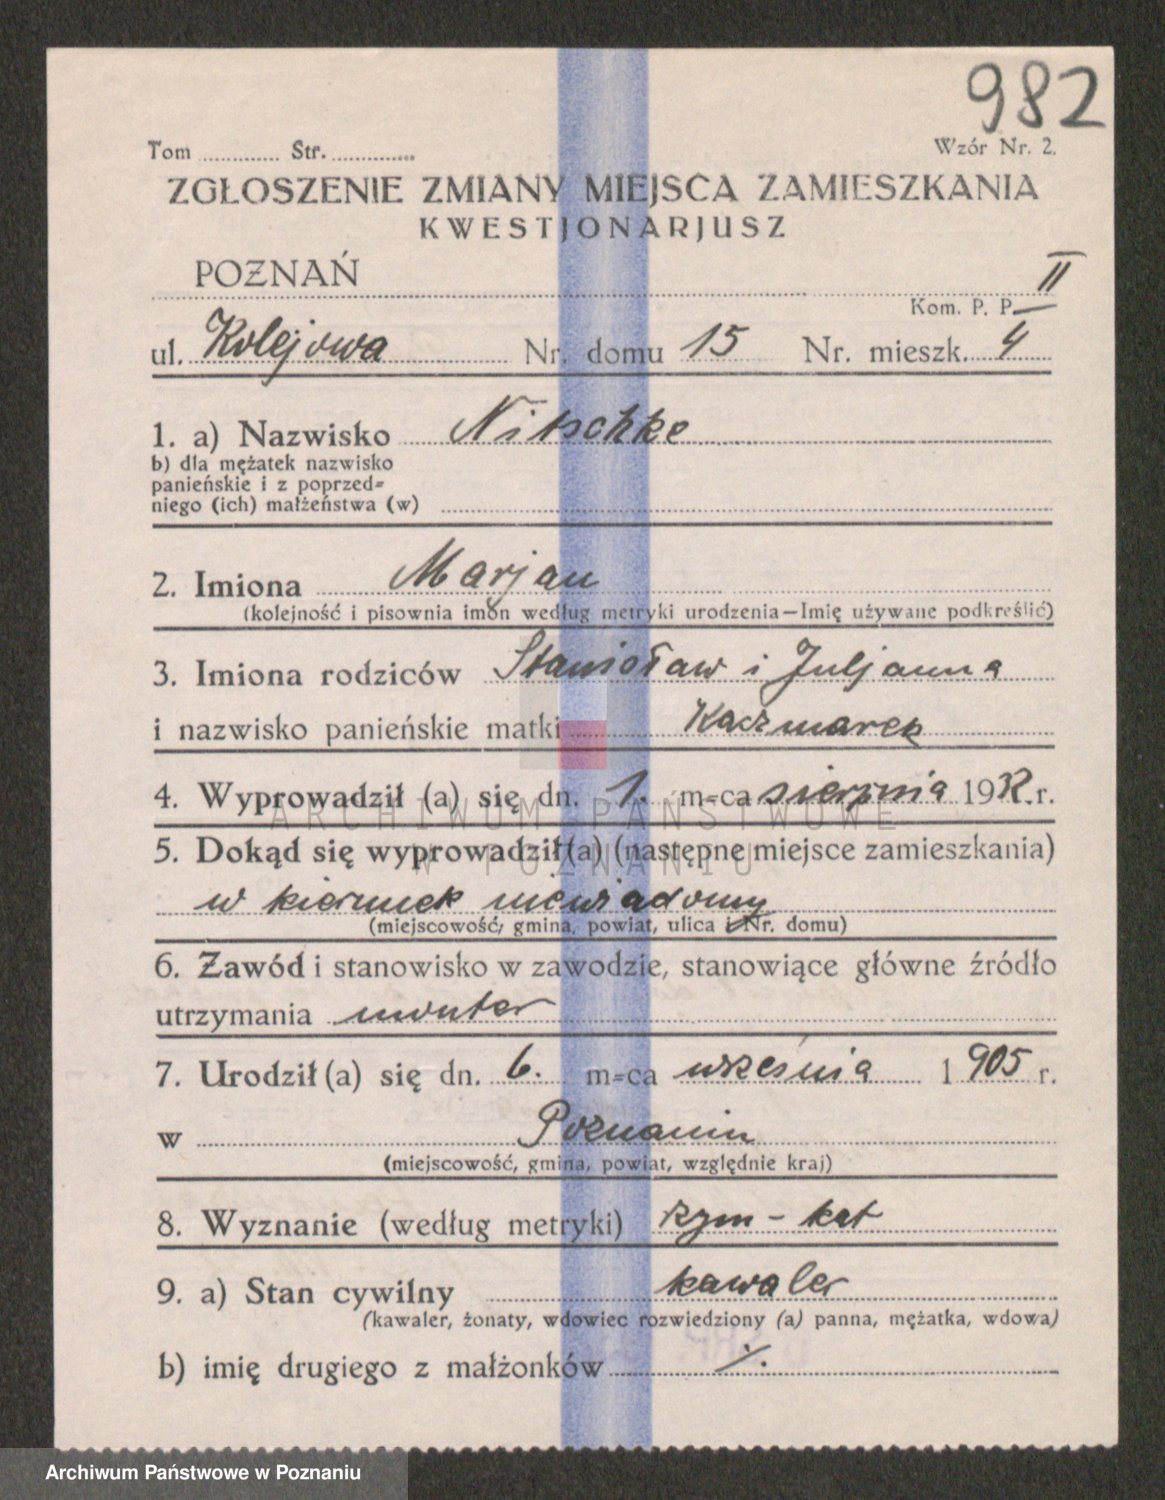 982
Tom ............. Str. .............
Wzór Nr. 2.
ZGŁOSZENIE ZMIANY MIEJSCA ZAMIESZKANIA
KWESTJONARJUSZ
POZNAŃ
II
Kom. P. P.
ul. Kolejowa Nr. domu 15 Nr. mieszk. 4
1. a) Nazwisko Nitschke
b) dla mężatek nazwisko
panieńskie i z poprzed=
niego (ich) małżeństwa (w)
2. Imiona Marjan
(kolejność i pisownia imon według metryki urodzenia—Imię używane podkreślić)
3. Imiona rodziców Stanisław i Juljanna
i nazwisko panieńskie matki Kaczmarek
4. Wyprowadził (a) się dn. 1. m=ca sierpnia 1932. r.
ARCHIWUM PAŃSTWOWE
5. Dokąd się wyprowadził (a) (następne miejsce zamieszkania)
W POZNANIU
w kierunek niewiadomy
(miejscowość, gmina, powiat, ulica i Nr. domu)
6. Zawód i stanowisko w zawodzie, stanowiące główne źródło
utrzymania monter
7. Urodził (a) się dn. 6. m=ca września 1905 r.
w Poznaniu
(miejscowość, gmina, powiat, względnie kraj)
8. Wyznanie (według metryki) rzym - kat
9. a) Stan cywilny kawaler
(kawaler, żonaty, wdowiec rozwiedziony (a) panna, mężatka, wdowa)
b) imię drugiego z małżonków ./.
Archiwum Państwowe w Poznaniu